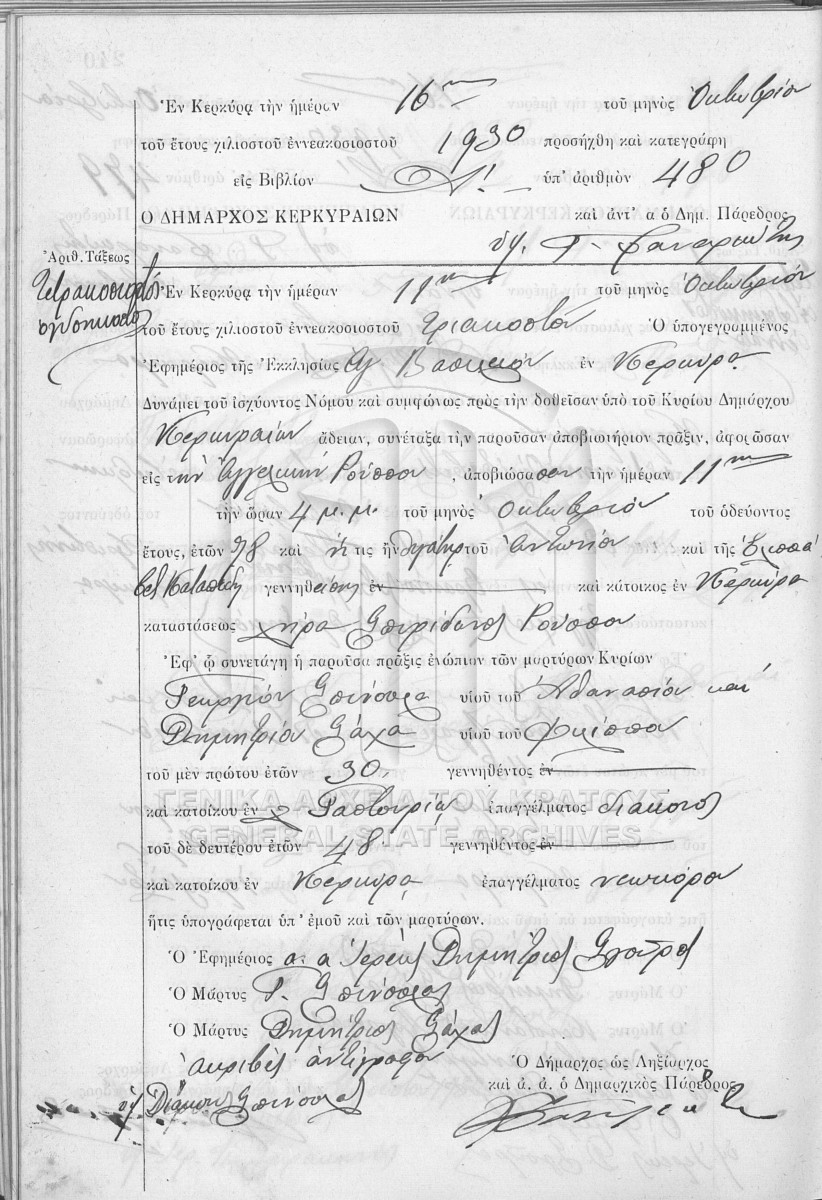 Ἐν Κερκύρᾳ τὴν ἡμέραν 16ην τοῦ μηνὸς Ὀκτωβρίου
τοῦ ἔτους χιλιοστοῦ ἐννεακοσιοστοῦ 1930 προσήχθη καὶ κατεγράφη
εἰς Βιβλίον Δ! ὑπ' ἀριθμὸν 480
Ο ΔΗΜΑΡΧΟΣ ΚΕΡΚΥΡΑΙΩΝ καὶ ἀντ' α ὁ Δημ. Πάρεδρος
Γ. Φαναριώτης
Ἀριθ. Τάξεως
Τετρακοσιοστὸν
ὀγδοηκοστὸν
Ἐν Κερκύρᾳ τὴν ἡμέραν 11ην τοῦ μηνὸς Ὀκτωβρίου
τοῦ ἔτους χιλιοστοῦ ἐννεακοσιοστοῦ τριακοστοῦ Ὁ ὑπογεγραμμένος
Ἐφημέριος τῆς Ἐκκλησίας Ἁγ Βασιλείου ἐν Κερκύρᾳ
Δυνάμει τοῦ ἰσχύοντος Νόμου καὶ συμφώνως πρὸς τὴν δοθεῖσαν ὑπὸ τοῦ Κυρίου Δημάρχου
Κερκυραίων ἄδειαν, συνέταξα τὴν παροῦσαν ἀποβιωτήριον πρᾶξιν, ἀφορῶσαν
εἰς τὴν Ἀγγελικὴν Ρούππου, ἀποβιώσασαν τὴν ἡμέραν 11ην
τὴν ὥραν 4 μ.μ. τοῦ μηνὸς Ὀκτωβρίου τοῦ ὁδεύοντος
ἔτους, ἐτῶν 78 καὶ ἥτις ἦν θυγάτηρ τοῦ Ἀντωνίου καὶ τῆς
γεννηθείσης ἐν καὶ κάτοικος ἐν Κερκύρᾳ
καταστάσεως χήρα Σπυρίδωνος Ρούππου
Ἐφ' ᾧ συνετάγη ἡ παροῦσα πρᾶξις ἐνώπιον τῶν μαρτύρων Κυρίων
Γεωργίου Σπίνουλα υἱοῦ τοῦ Ἀθανασίου καὶ
Δημητρίου Σάχα υἱοῦ τοῦ Φιλίππου
τοῦ μὲν πρώτου ἐτῶν 30 γεννηθέντος ἐν
καὶ κατοίκου ἐν Γαστουρίῳ ἐπαγγέλματος διάκονος
τοῦ δὲ δευτέρου ἐτῶν 48 γεννηθέντος ἐν
καὶ κατοίκου ἐν Κερκύρᾳ ἐπαγγέλματος νεωκόρου
ἥτις ὑπογράφεται ὑπ' ἐμοῦ καὶ τῶν μαρτύρων.
Ὁ Ἐφημέριος α. α Ἱερεὺς Δημήτριος Σγοῦρος
Ὁ Μάρτυς Γ. Σπίνουλας
Ὁ Μάρτυς Δημήτριος Σάχας
ἀκριβὲς ἀντίγραφον
Διάκονος Σπίνουλας
Ὁ Δήμαρχος ὡς Ληξίαρχος
καὶ ἀ. ἀ. ὁ Δημαρχικὸς Πάρεδρος
ΓΕΝΙΚΑ ΑΡΧΕΙΑ ΤΟΥ ΚΡΑΤΟΥΣ
GENERAL STATE ARCHIVES